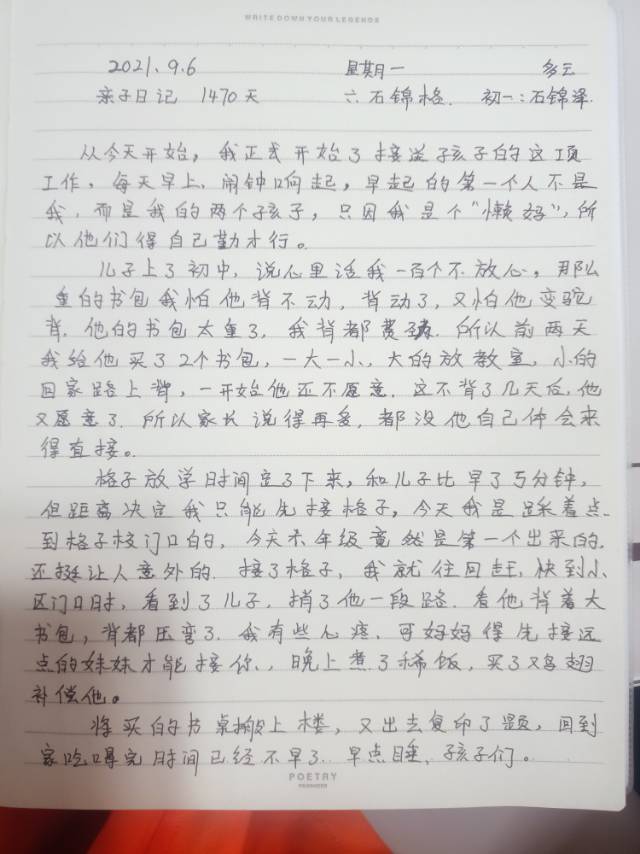 WRITE DOWN YOUR LEGENDS
2021.9.6 星期一 多云
亲子日记 1470天 六:石锦格. 初一:石锦泽.
从今天开始，我正式开始了接送孩子的这项
工作，每天早上，闹钟响起，早起的第一个人不是
我，而是我的两个孩子，只因我是个“懒妈”，所
以他们得自己勤才行。
儿子上了初中，说心里话我一百个不放心，那么
重的书包我怕他背不动，背动了，又怕他变驼
背，他的书包太重了，我背都费劲，所以前两天
我给他买了2个书包，一大一小，大的放教室，小的
回家路上背，一开始他还不愿意，这不背了几天后，他
又愿意了，所以家长说得再多，都没他自己体会来
得直接。
格子放学时间定了下来，和儿子比早了5分钟，
但距离决定我只能先接格子，今天我是踩着点
到格子校门口的，今天六年级竟然是第一个出来的，
还挺让人意外的，接了格子，我就往回赶，快到小
区门口时，看到了儿子，捎了他一段路，看他背着大
书包，背都压弯了，我有些心疼，可妈妈得先接远
点的妹妹才能接你，晚上煮了稀饭，买了鸡翅
补偿他。
将买的书桌搬上楼，又出去复印了题，回到
家吃喝完时间已经不早了，早点睡，孩子们。
POETRY